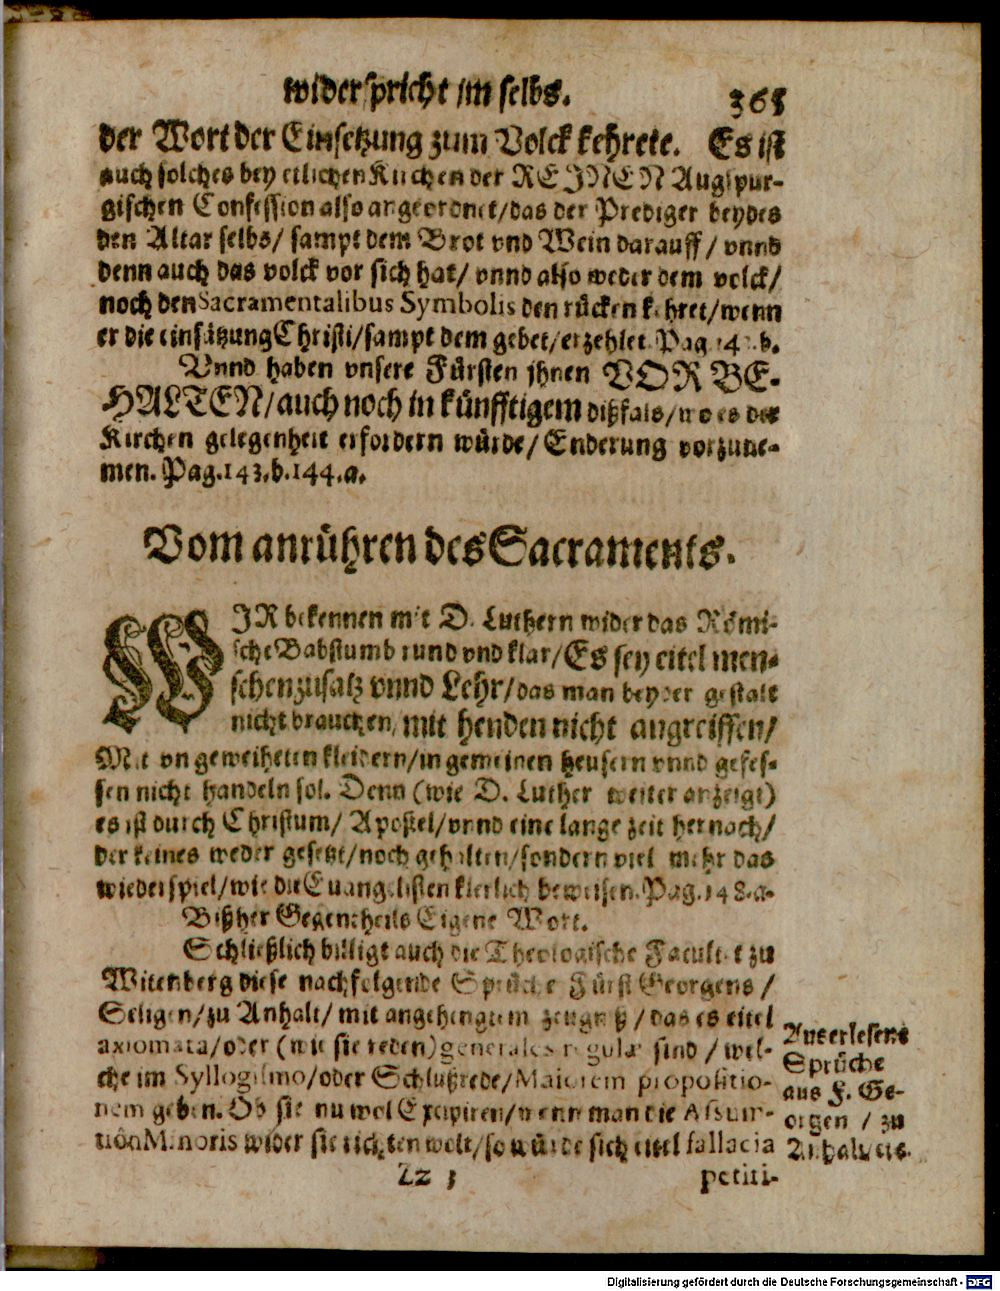 widerspricht im selbs. 365
der Wort der Einsetzung zum Volck kehrete. Es ist
auch solches bey etlichen Kirchen der REINEN Augspur-
gischen Confession also angeordnet/das der Prediger beydes
den Altar selbs/ sampt dem Brot vnd Wein darauff/ vnnd
denn auch das volck vor sich hat/ vnnd also weder dem volck/
noch den Sacramentalibus Symbolis den rücken kehret/wenn
er die einsätzung Christi/sampt dem gebet/erzehlet. Pag. 14 .b.
Vnnd haben vnsere Fürsten jhnen VORBE-
HALTEN/auch noch in künfftigem dißfals/wo es der
Kirchen gelegenheit erfordern würde/ Enderung vorzune-
men. Pag.143.b.144.a.
Vom anrühren des Sacraments.
WIR bekennen mit D. Luthern wider das Römi-
sche Babstumb rund vnd klar/Es sey eitel men-
schenzusatz vnnd Lehr/das man beyder gestalt
nicht brauchen, mit henden nicht angreiffen/
Mit vngeweiheten kleidern/in gemeinen heusern vnnd gefes-
sen nicht handeln sol. Denn (wie D. Luther weiter anzeigt)
es ist durch Christum/ Apostel/vnnd eine lange zeit hernach/
der keines weder gesetzt/noch gehalten/sondern viel mehr das
wiederspiel/wie die Euangelisten klerlich beweisen. Pag.148.a.
Bißher Gegentheils Eigene Wort.
Schließlich billigt auch die Theologische Facultet zu
Witenberg diese nachfolgende Sprüche Fürst Georgens /
Seligen/zu Anhalt/ mit angehengtem zeugnß/das es eitel
axiomata/oder (wie sie reden)generales regulæ sind / wel-
che im Syllogismo/oder Schlußrede/Maiorem propositio-
nem geben. Ob sie nu wol Excipiren/wenn man die Assum-
tionMinoris wider sie richten wolt/so würde sich eitel fallacia
Auserlesene
Sprüche
aus F. Ge-
orgen / zu
Anhalt/etc.
Zz 3 petiti-
Digitalisierung gefördert durch die Deutsche Forschungsgemeinschaft - DFG